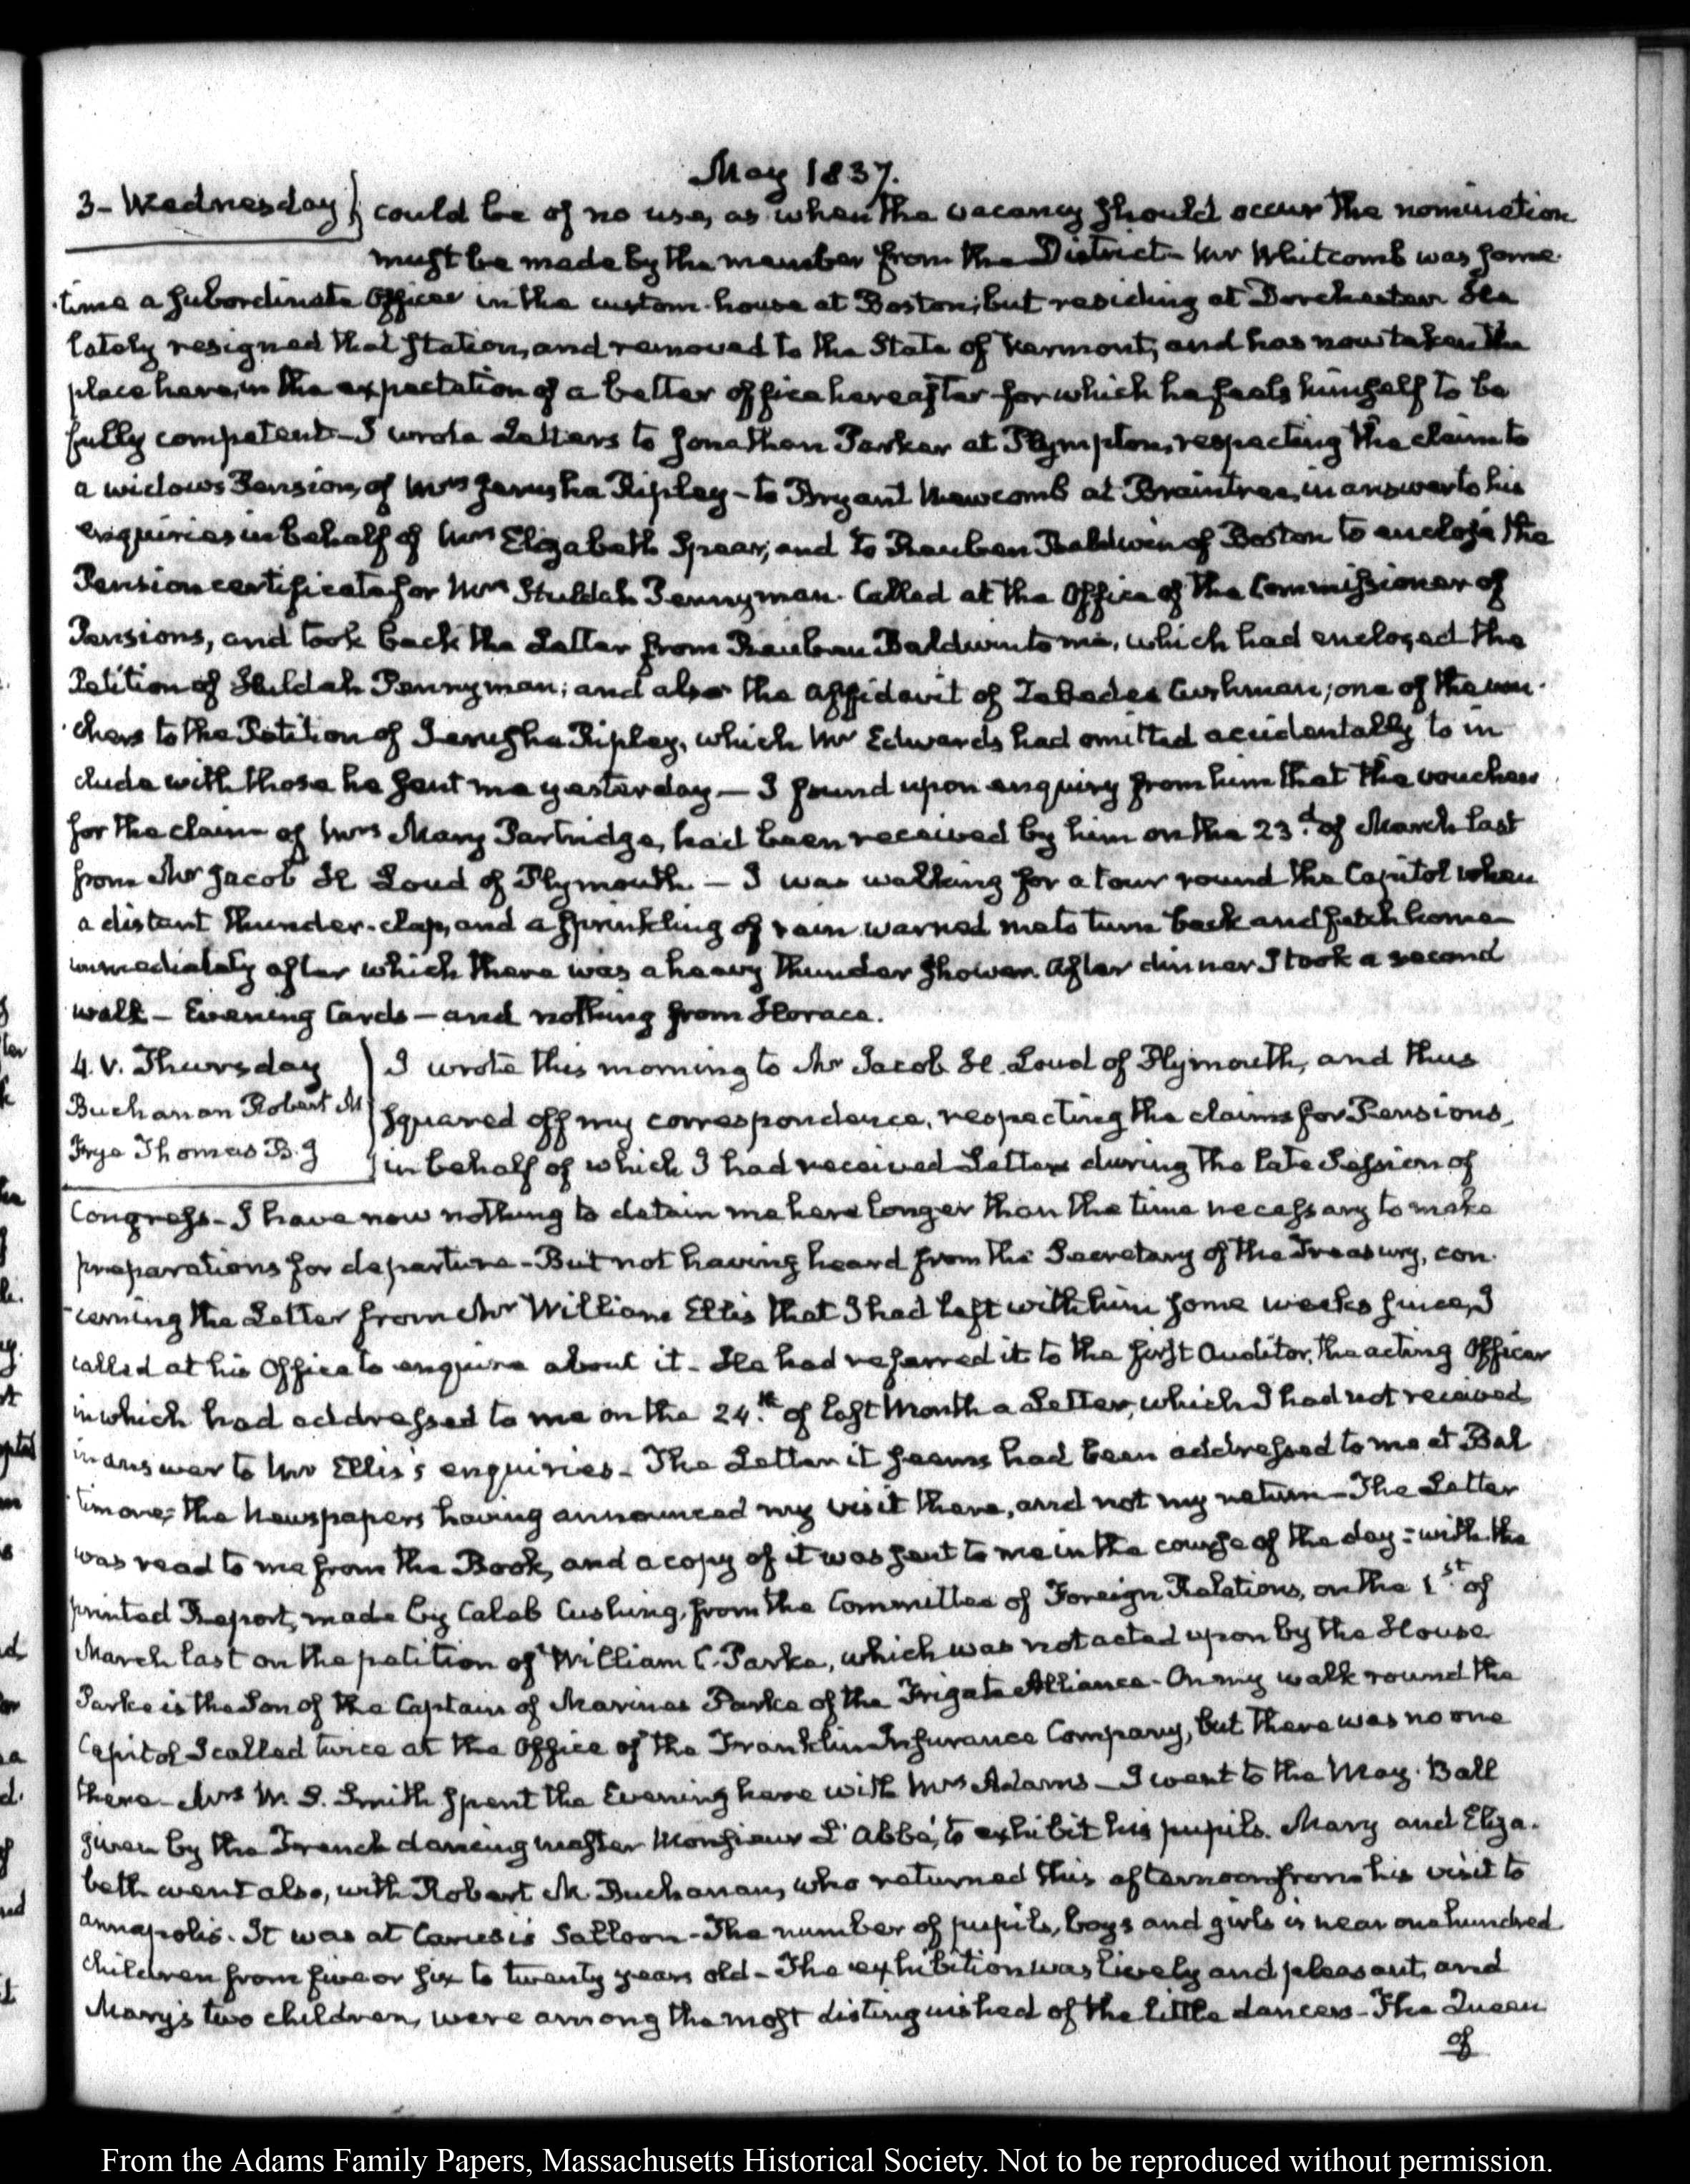 May 1837.
3- Wednesday} could be of no use, as when the vacancy should occur the nomination
must be made by the member from the District- Mr Whitcomb was some-
time a subordinate Officer in the custom-house at Boston; but residing at Dorchester He
lately resigned that station, and removed to the State of Vermont, and has now taken the
place here, in the expectation of a better office hereafter for which he feels himself to be
fully competent- I wrote Letters to Jonathan Parker at Plympton, respecting the claim to
a widows Pension, of Mrs Jerusha Ripley- to Bryant Newcomb at Braintree, in answer to his
enquiries in behalf of Mrs Elizabeth Spear, and to Reuben Baldwin of Boston to enclose the
Pension certificate for Mrs Huldah Pennyman. Called at the Office of the Commissioner of
Pensions, and took back the Letter from Reuben Baldwin to me, which had enclosed the
Petition of Huldah Pennyman; and also the affidavit of Zebedee Cushman, one of the vou-
chers to the Petition of Jerusha Ripley, which Mr Edwards had omitted accidentally to in
clude with those he sent me yesterday- I found upon enquiry from him that the vouchers
for the claim of Mrs Mary Partridge, had been received by him on the 23.d of March last
from Mr Jacob H Loud of Plymouth- I was walking for a tour round the Capitol when
a distant thunder-clap, and a sprinkling of rain warned me to turn back and fetch home-
immediately after which there was a heavy thunder shower. After dinner I took a second
walk- Evening Cards- and nothing from Horace.
4. V. Thursday } I wrote this morning to Mr Jacob H. Loud of Plymouth, and thus
Buchanan Robert M squared off my correspondence, respecting the claims for Pensions,
Frye Thomas B. J in behalf of which I had received Letters during the late Session of
Congress- I have now nothing to detain me here longer than the time necessary to make
preparations for departure- But not having heard from the Secretary of the Treasury, con-
cerning the Letter from Mr William Ellis that I had left with him some weeks since, I
called at his Office to enquire about it- He had referred it to the first Auditor, the acting Officer
in which had addressed to me on the 24.th of last Month a Letter, which I had not received
in answer to Mr Ellis's enquiries- The Letter it seems had been addressed to me at Bal
timore; the Newspapers having announced my visit there, and not my return- The Letter
was read to me from the Book, and a copy of it was sent to me in the course of the day: with the
printed Report, made by Caleb Cushing, from the Committee of Foreign Relations, on the 1st of
March last on the petition of William C. Parke, which was not acted upon by the House
Parke is the Son of the Captain of Marines Parke of the Frigate Alliance- On my walk round the
Capitol I called twice at the Office of the Franklin Insurance Company, but there was no one
there- Mrs W. S. Smith spent the Evening here with Mrs Adams- I went to the May-Ball
given by the French dancing master Monsieur L'Abbé, to exhibit his pupils. Mary and Eliza-
beth went also, with Robert M Buchanan, who returned this afternoon from his visit to
Annapolis. It was at Carusi's Salloon- The number of pupils, boys and girls is near one hundred
children from five or six to twenty years old- The exhibition was lively and pleasant, and
Mary's two children, were among the most distinguished of the little dancers- The Queen
of
From the Adams Family Papers, Massachusetts Historical Society. Not to be reproduced without permission.